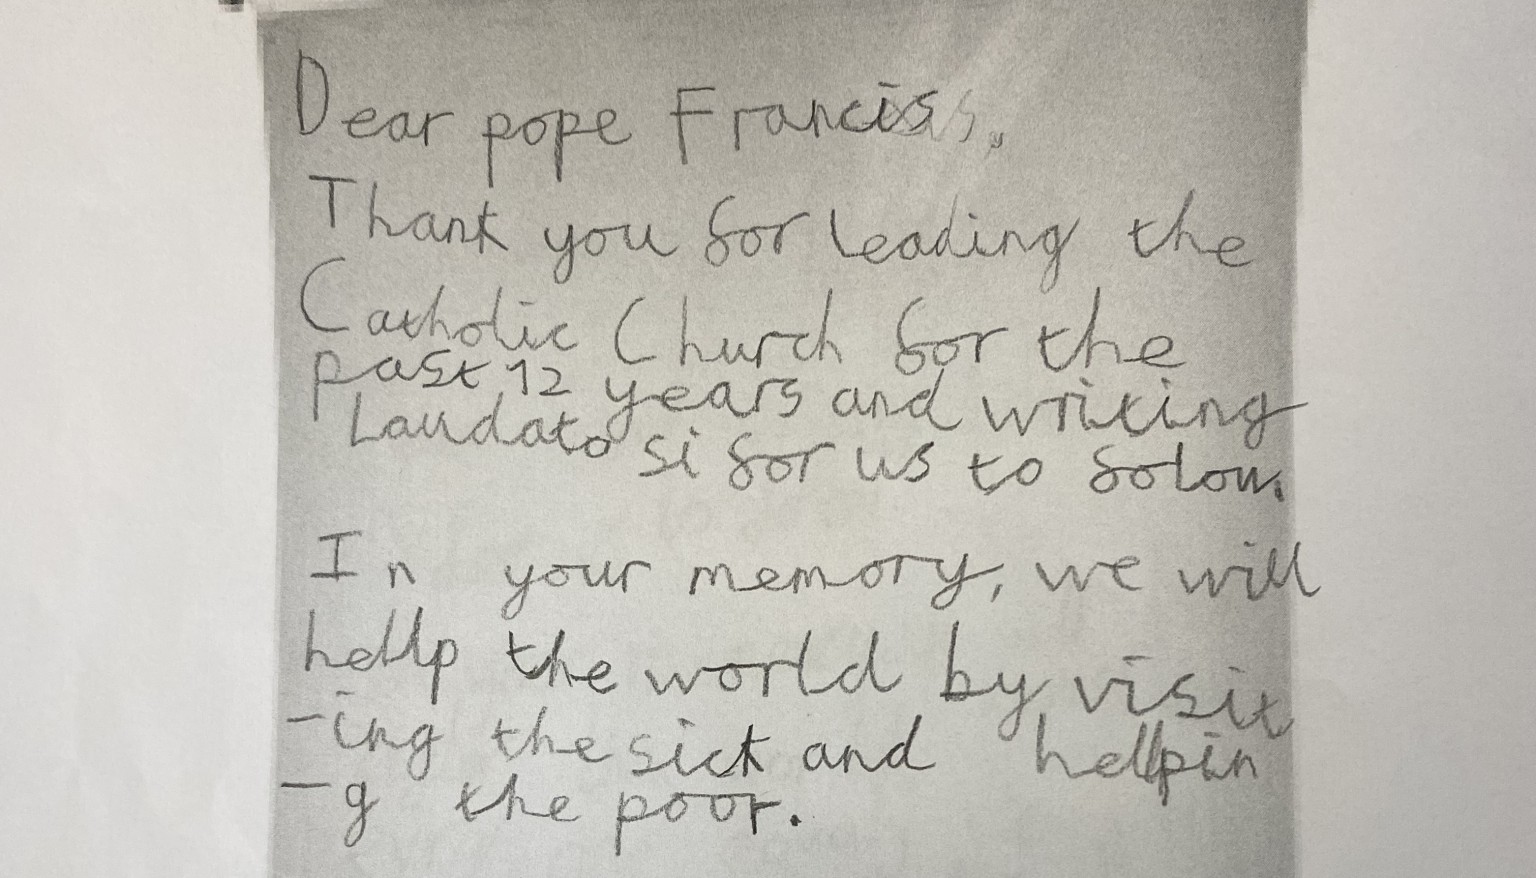 Dear pope Francis,
Thank you for leading the
Catholic Church for the
past 12 years and writing
Laudato si for us to folow.
In your memory, we will
hellp the world by visit
-ing the sick and hellpin
-g the poor.